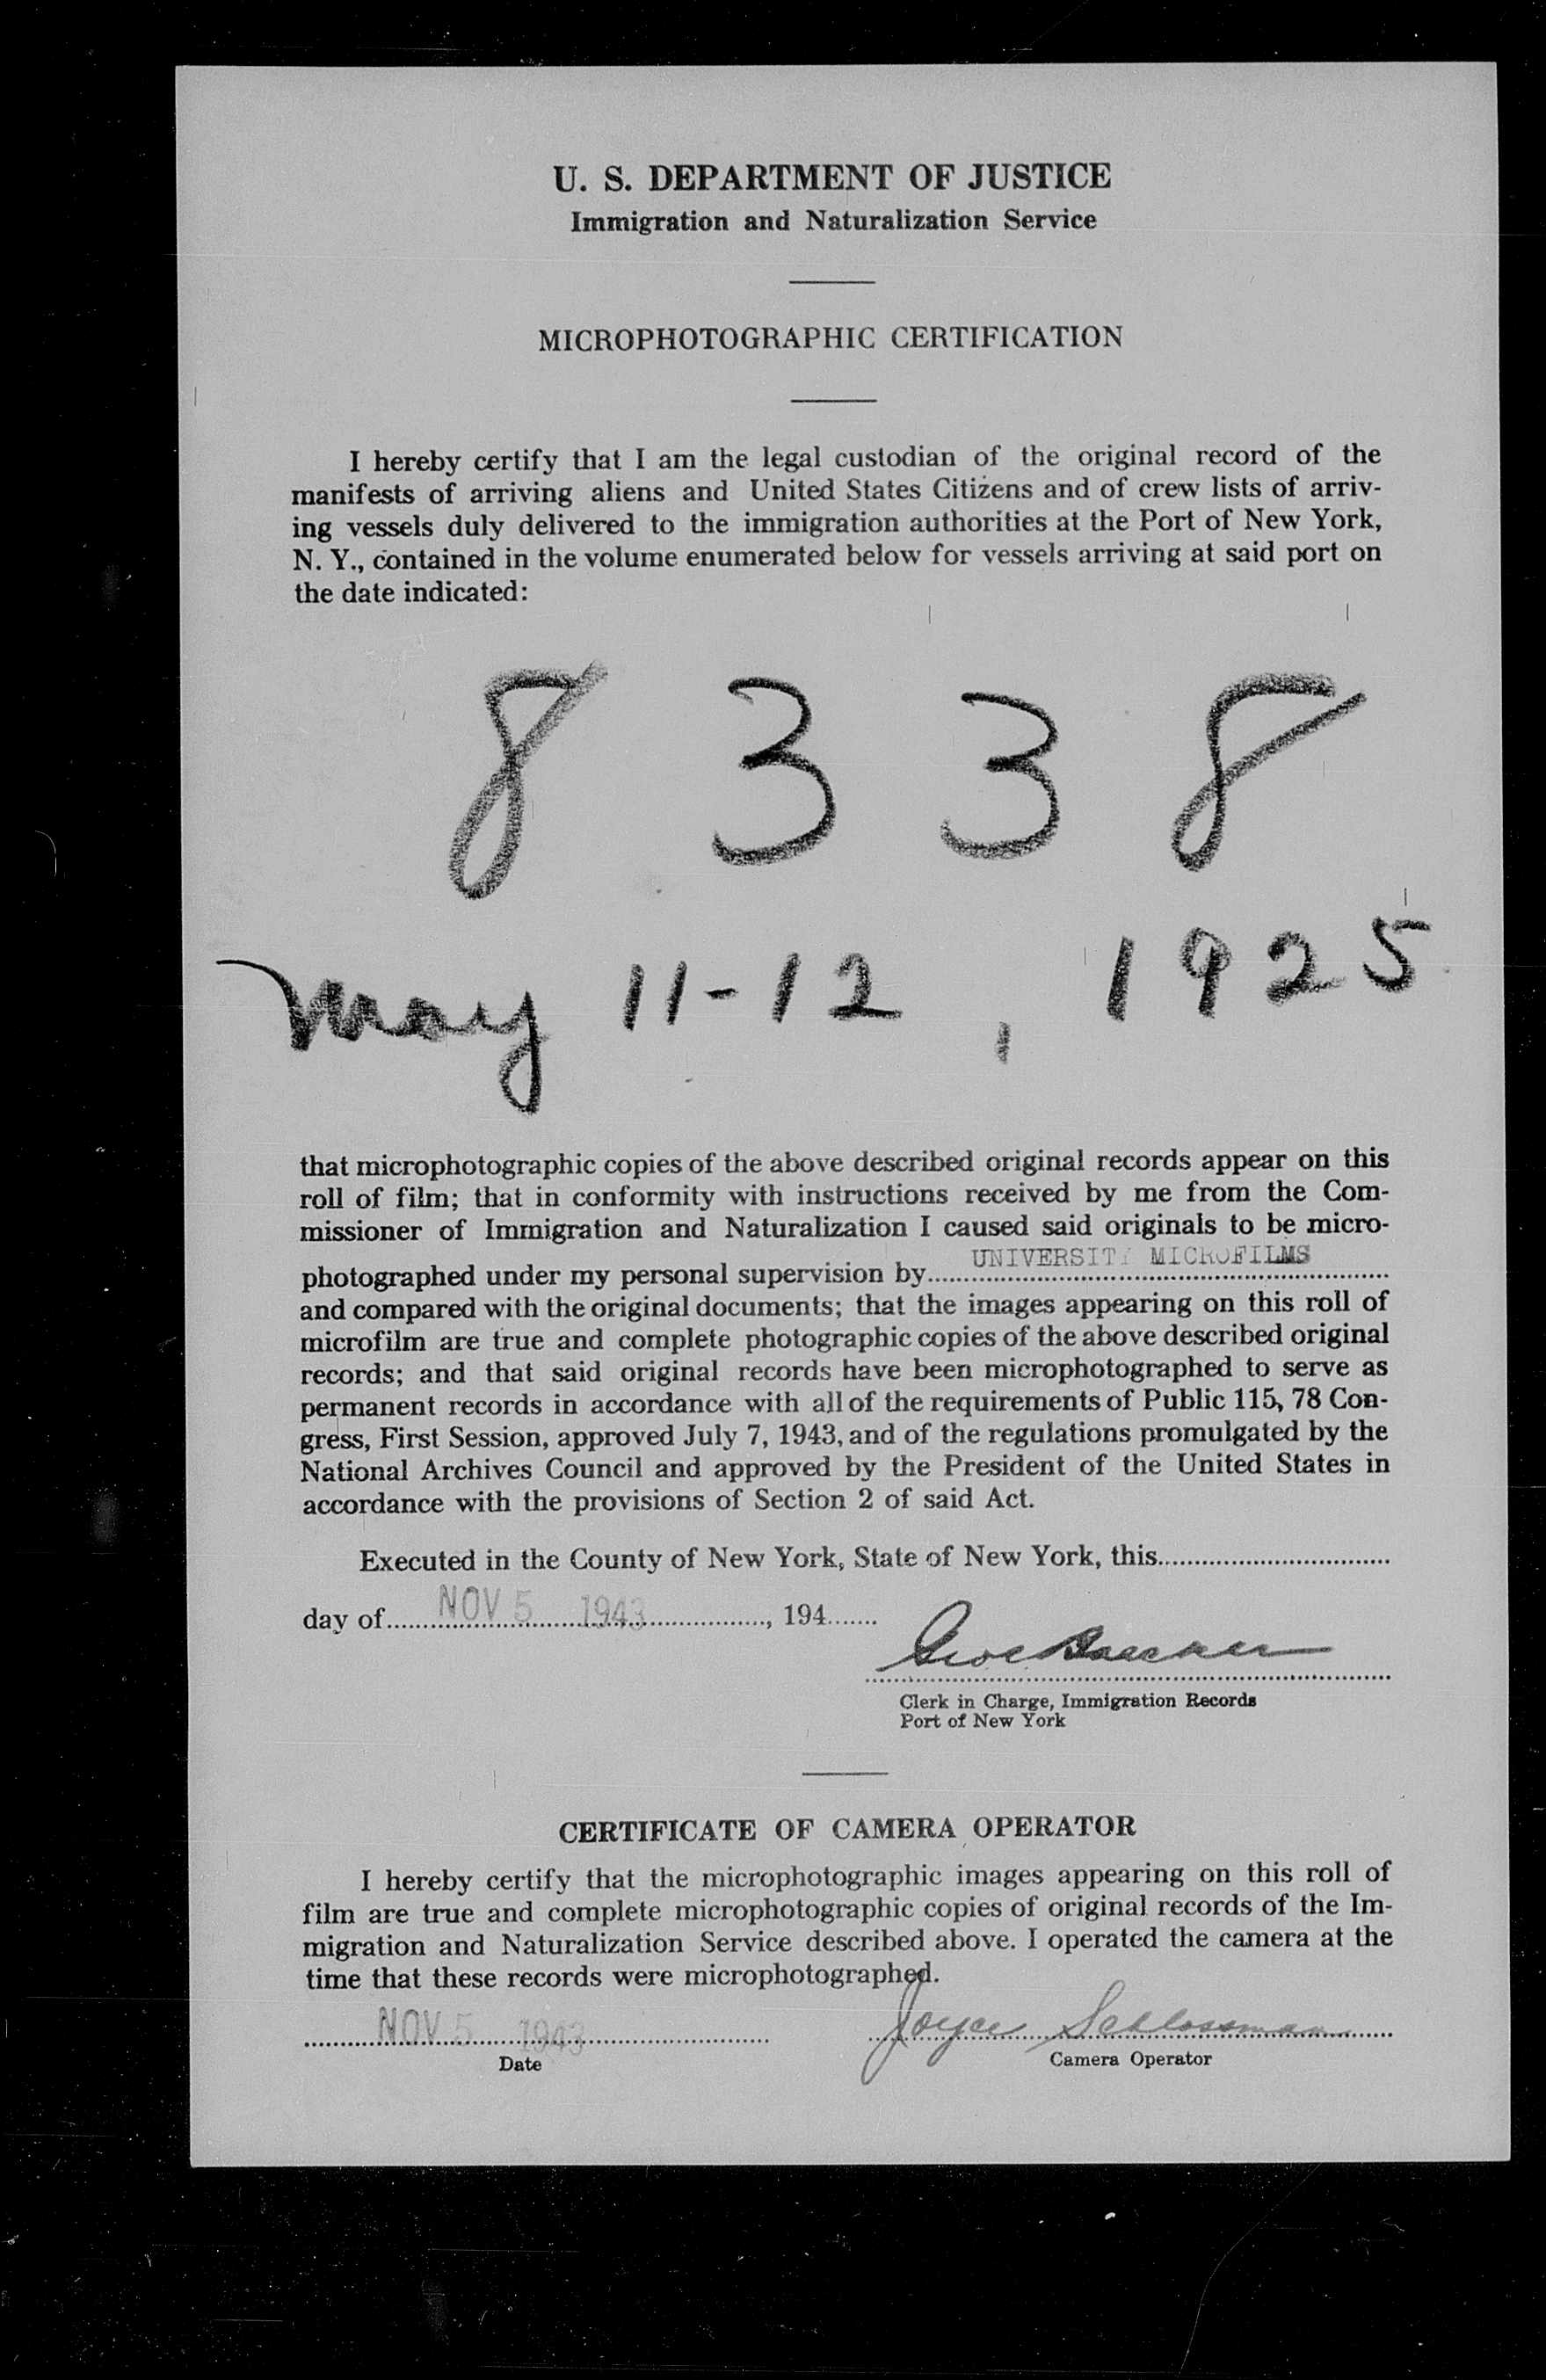 U. S. DEPARTMENT OF JUSTICE
Immigration and Naturalization Service
MICROPHOTOGRAPHIC CERTIFICATION
I hereby certify that I am the legal custodian of the original record of the
manifests of arriving aliens and United States Citizens and of crew lists of arriv-
ing vessels duly delivered to the immigration authorities at the Port of New York,
N. Y., contained in the volume enumerated below for vessels arriving at said port on
the date indicated:
8 3 3 8
May 11-12, 1925
that microphotographic copies of the above described original records appear on this
roll of film; that in conformity with instructions received by me from the Com-
missioner of Immigration and Naturalization I caused said originals to be micro-
photographed under my personal supervision by UNIVERSITY MICROFILMS
and compared with the original documents; that the images appearing on this roll of
microfilm are true and complete photographic copies of the above described original
records; and that said original records have been microphotographed to serve as
permanent records in accordance with all of the requirements of Public 115, 78 Con-
gress, First Session, approved July 7, 1943, and of the regulations promulgated by the
National Archives Council and approved by the President of the United States in
accordance with the provisions of Section 2 of said Act.
Executed in the County of New York, State of New York, this
day of NOV 5 1943, 194
Clerk in Charge, Immigration Records
Port of New York
CERTIFICATE OF CAMERA OPERATOR
I hereby certify that the microphotographic images appearing on this roll of
film are true and complete microphotographic copies of original records of the Im-
migration and Naturalization Service described above. I operated the camera at the
time that these records were microphotographed.
NOV 5 1943 Joyce Schlossman
Date Camera Operator